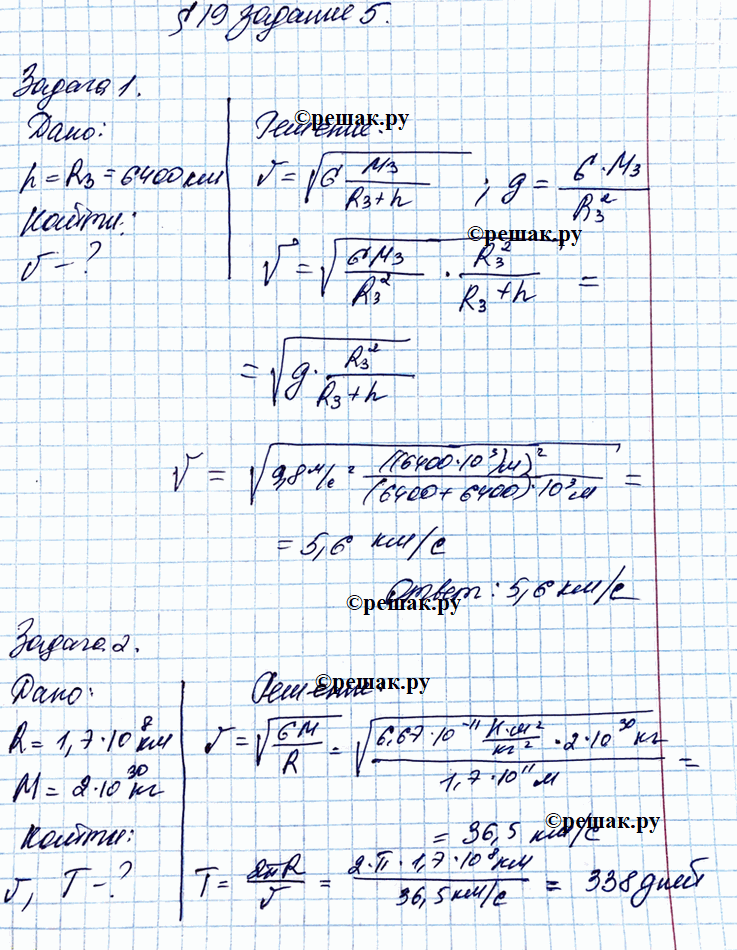 § 19 задание 5.
Задача 1.
Дано:
h = R₃ = 6400 км
Найти:
v - ?
Решение:
©решак.ру
v = √(G M₃/(R₃+h)) ; g = G·M₃/R₃²
©решак.ру
v = √(GM₃/R₃² · R₃²/(R₃+h)) =
= √(g · R₃²/(R₃+h))
v = √(9,8 м/с² ((6400·10³)м)²/((6400+6400)·10³м)) =
= 5,6 км/с
Ответ: 5,6 км/с
©решак.ру
Задача 2.
Дано:
R = 1,7·10⁸ км
M = 2·10³⁰ кг
Найти:
v, T - ?
Решение:
©решак.ру
v = √(GM/R) = √(6,67·10⁻¹¹ Н·м²/кг² · 2·10³⁰ кг/1,7·10¹¹ м) =
= 36,5 км/с
©решак.ру
T = 2πR/v = 2·π·1,7·10⁸ км/36,5 км/с = 338 дней